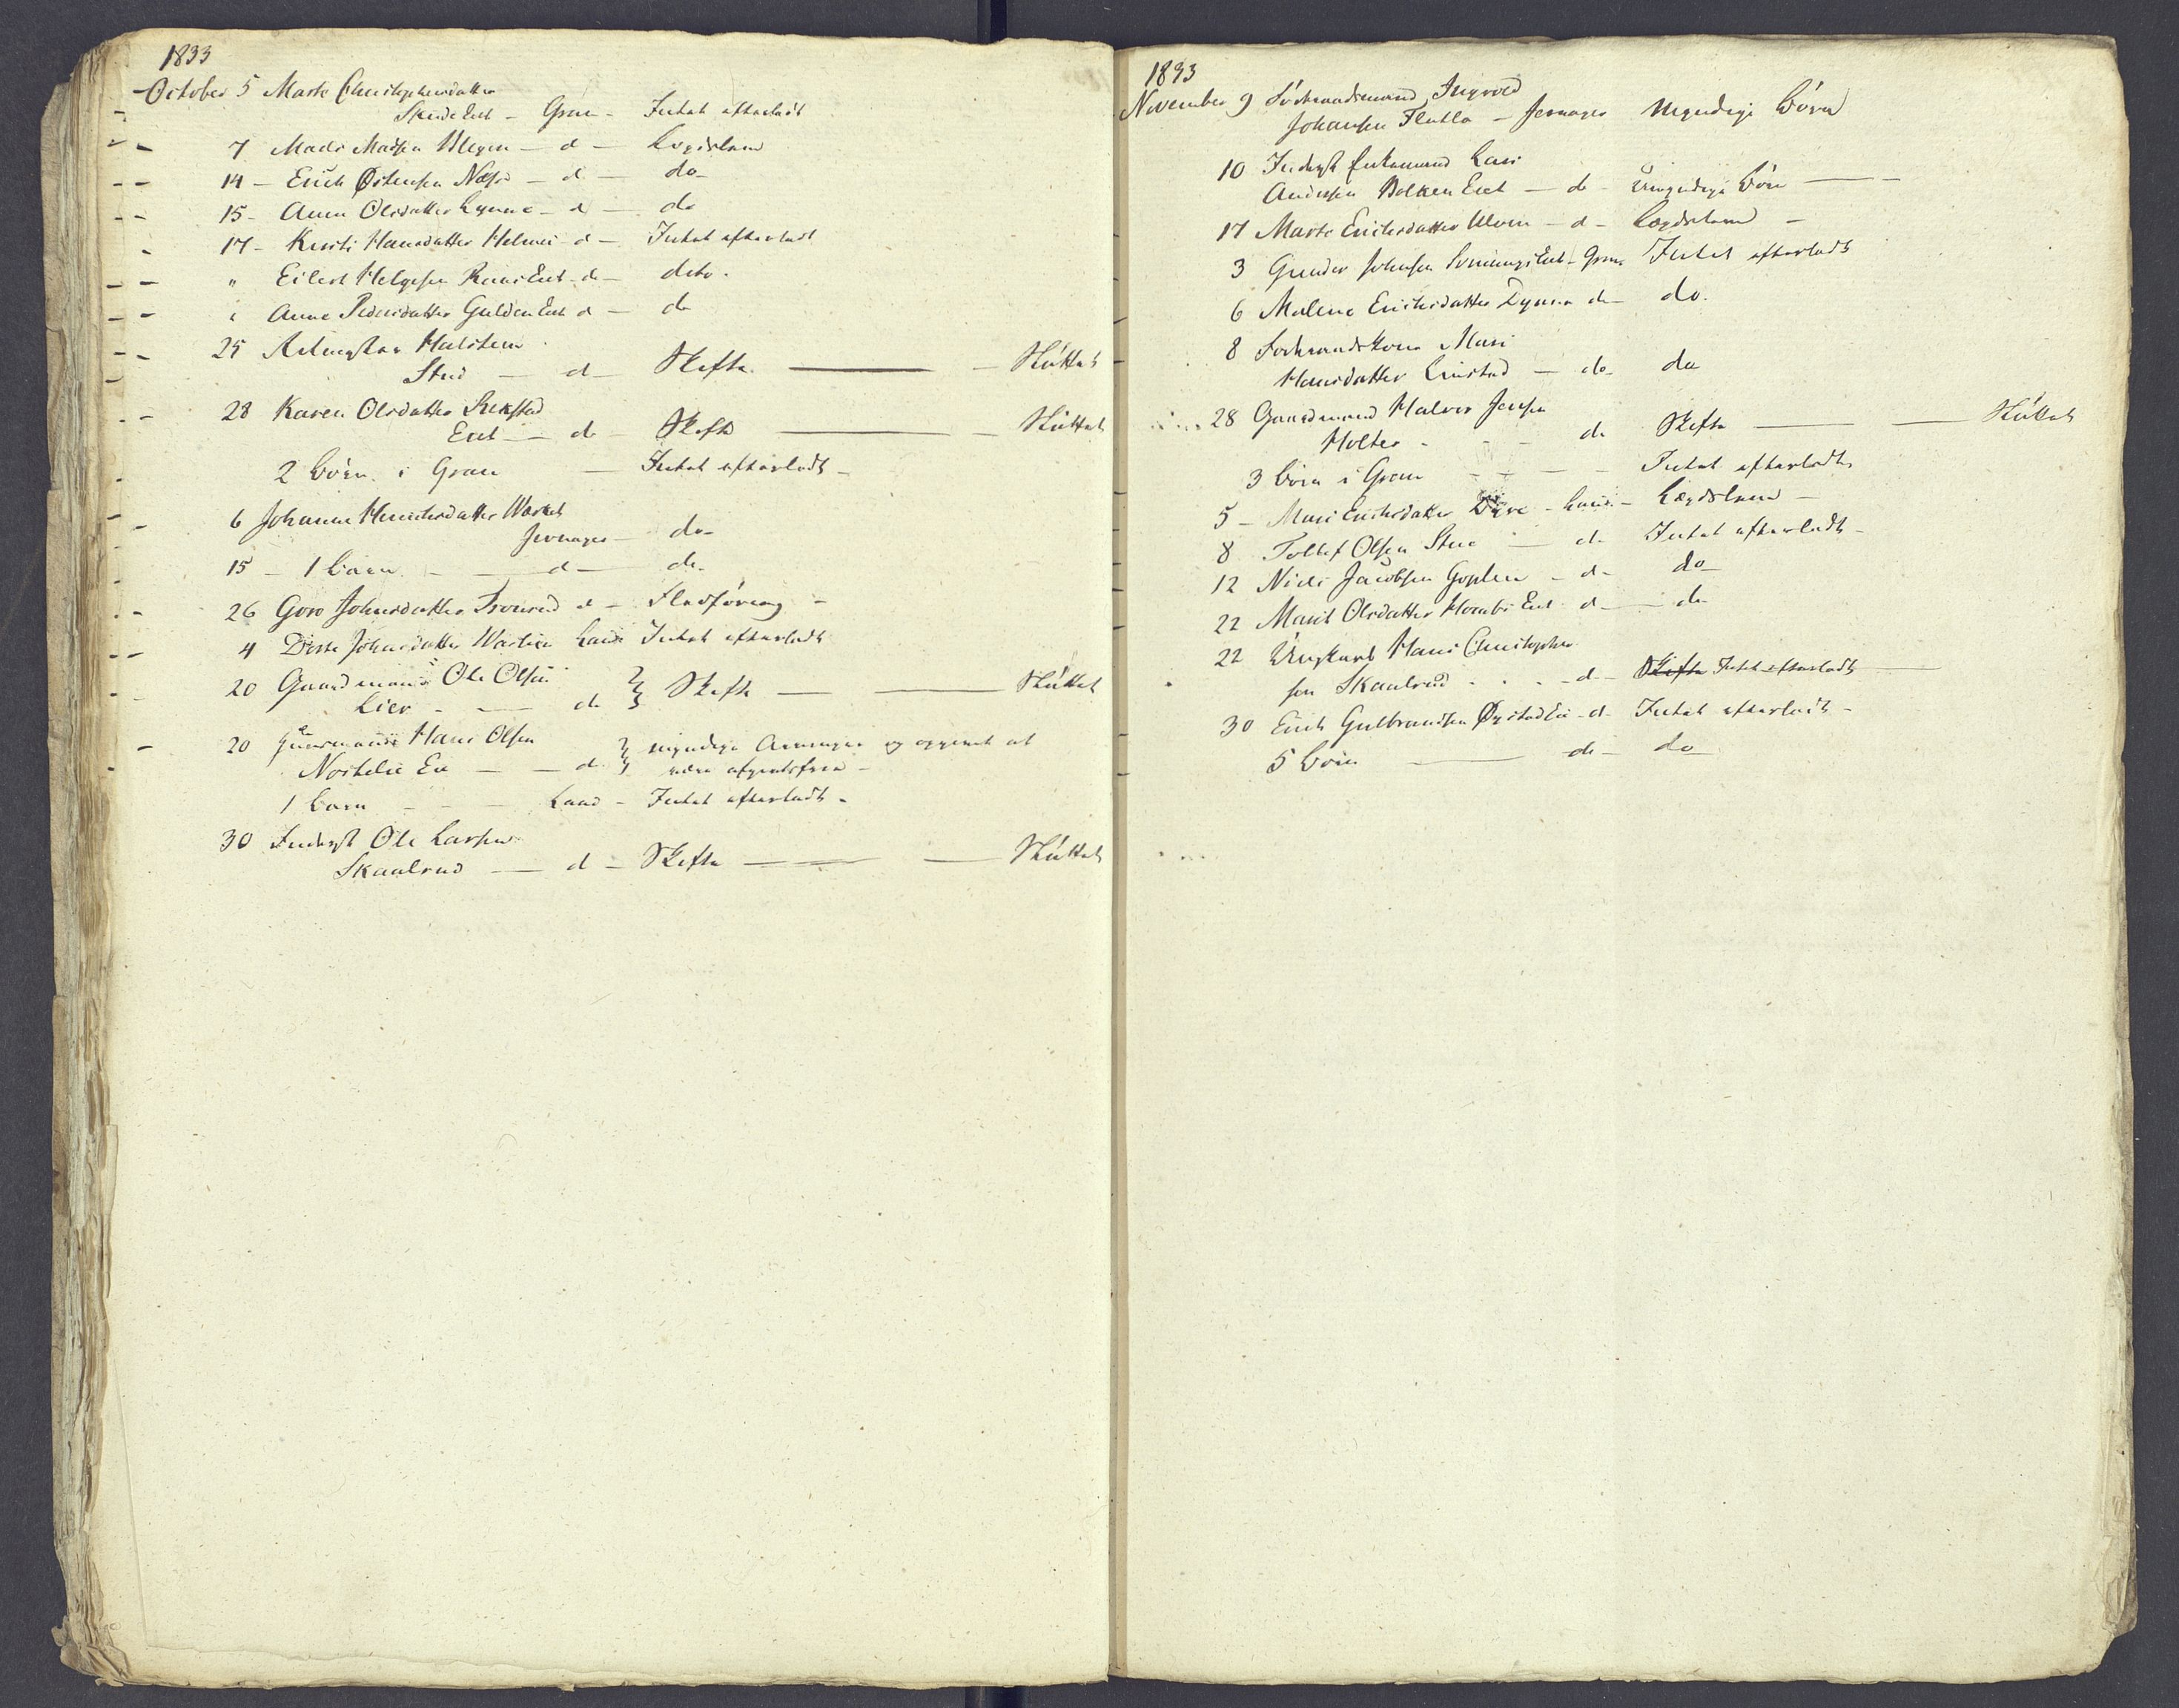 1833
October 5 Marte Christophersdatter
Skudi Eiet - Gran - Intet efterladt
7 Mads Madsen Blegen - d - Lægdslem
14 - Erich Østensen Næss - d - do
15 - Anne Olsdatter Lynne - d - do
17 - Kirsti Hansdatter Helmei - d - Intet efterladt
" Eilert Helgesen Eiet - d - deto.
Anne Pedersdatter Gulden Eiet d - do
25 Halsten
Stud - d - Skifte - Sluttet
28 Karen Olsdatter
Eiet - do - Skifte - Sluttet
2 Börn i Gran - Intet efterladt -
6 Johanne Henrichsdatter
Jevnager - do -
15 - 1 Barn - d - do -
26 Goro Johnsdatter d -
4 Dorte Johnsdatter Land Intet efterladt
20 Gaardmand Ole Olsen
Lier - do Skifte - Sluttet
20 Hans Olsen
Eie - do myndige Arvinger og opgivet at
være
1 Barn - Land - Intet efterladt -
30 Inderst Ole Larsen
Skaalrud - d - Skifte - Sluttet
1833
November 9 Ingvold
Johansen Flatla - Jevnager Myndige Börn
10 Inderst Enkemand Lars
Andersen Eiet - do - Umyndige Börn -
17 Marte Erichsdatter Ulven - d - Lægdslem -
3 Gunder Johnsen Eiet - Gran Intet efterladt
6 Malene Erichsdatter Dynna do - do.
8 Mari
Hansdatter - do - do
28 Gaardmand Halvor Jensen
Holter - do Skifte - Sluttet
3 Börn i Gran - Intet efterladt
5 - Mari Erichsdatter - Land - Lægdslem -
8 Tollef Olsen Stue - do Intet efterladt -
12 Niels Jacobsen Goplen - d - do
22 Marit Olsdatter Eiet - d - do
22 Ungkarl Hans Christopher
sen Skaalrud - d - Skifte Intet efterladt
30 Erich Gulbrandsen Øystad Eie - d - Intet efterladt -
5 Börn - do - do